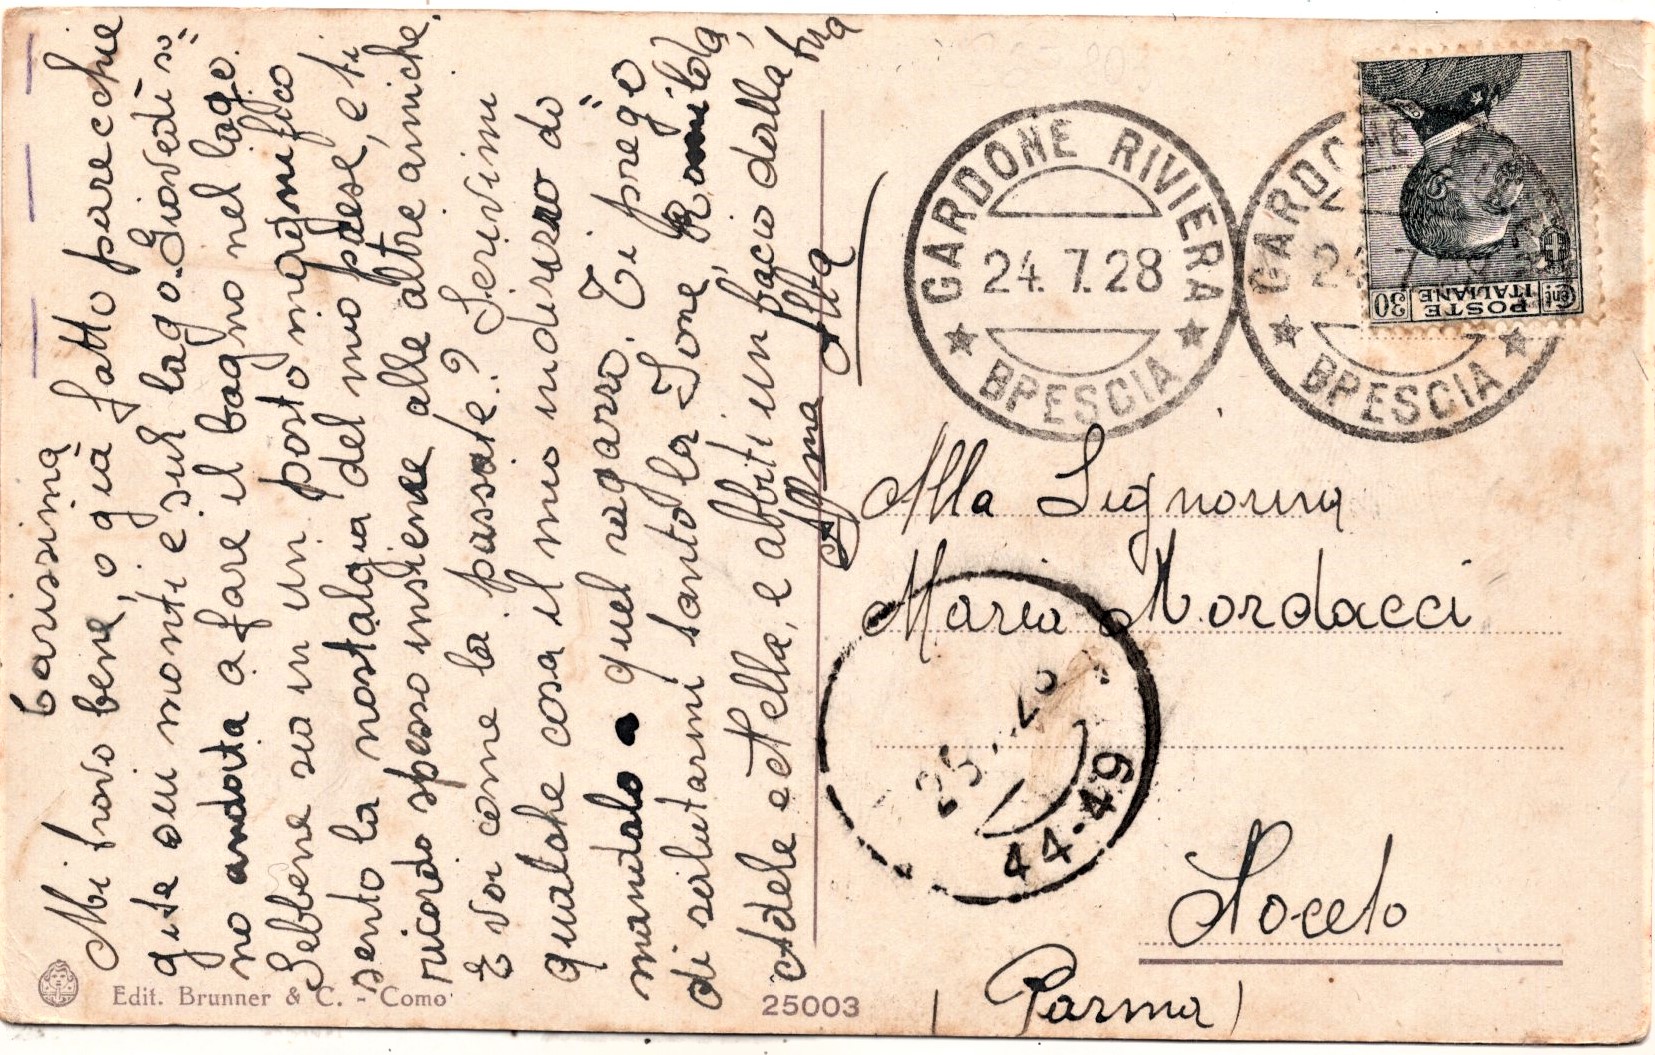 Carissima
Mi trovo bene, o già fatto parecchie
gite sui monti e sul lago. Giovedì so=
no andata a fare il bagno nel lago.
Sebbene sia in un posto magnifico
sento la nostalgia del mio paese, e ti
ricordo spesso insieme alle altre amiche.
E voi come la passate? Scrivimi
qualche cosa il mio indirizzo do
mandalo a quel ragazzo. Ti prego
di salutarmi tanto la Ione, Romilda,
Adele e Nella, e abbiti un bacio dalla tua
Aff.ma Alta
Edit. Brunner & C. - Como
25003
GARDONE RIVIERA
24.7.28
BRESCIA
GARDONE
BRESCIA
Cent. POSTE 30
ITALIANE
Alla Signorina
Maria Nordacci
25
44-49
Noceto
(Parma)